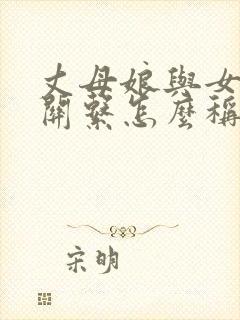 丈母娘與女
關繫怎麼稱
宋明